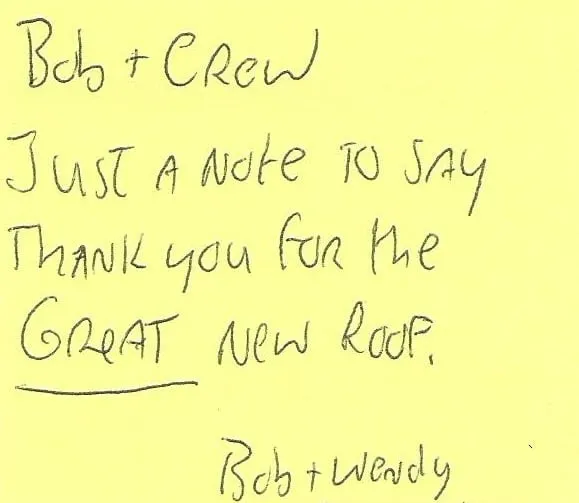 Bob + Crew
Just a note to say
Thank you for the
Great new roof.
Bob + Wendy